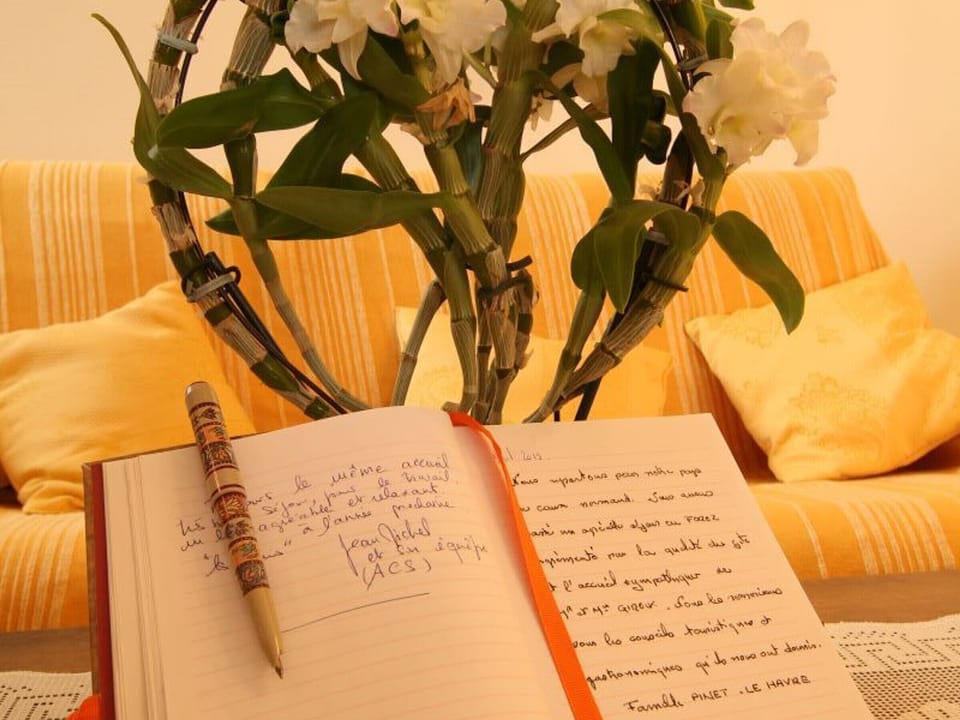 le même accueil
séjour, pour le travail,
agréable et relaxant.
" à l'année prochaine
Jean Michel
et son équipe
(ACS)
2012.
Nous repartons pour notre pays
cœur normand. Nous avons
un agréable séjour au FOREZ
agrémenté par la qualité du gîte
et l'accueil sympathique de
Mr et Mme GIROUX. Nous les remercions
pour les conseils touristiques et
gastronomiques qu'ils nous ont donnés.
Famille PINET - LE HAVRE